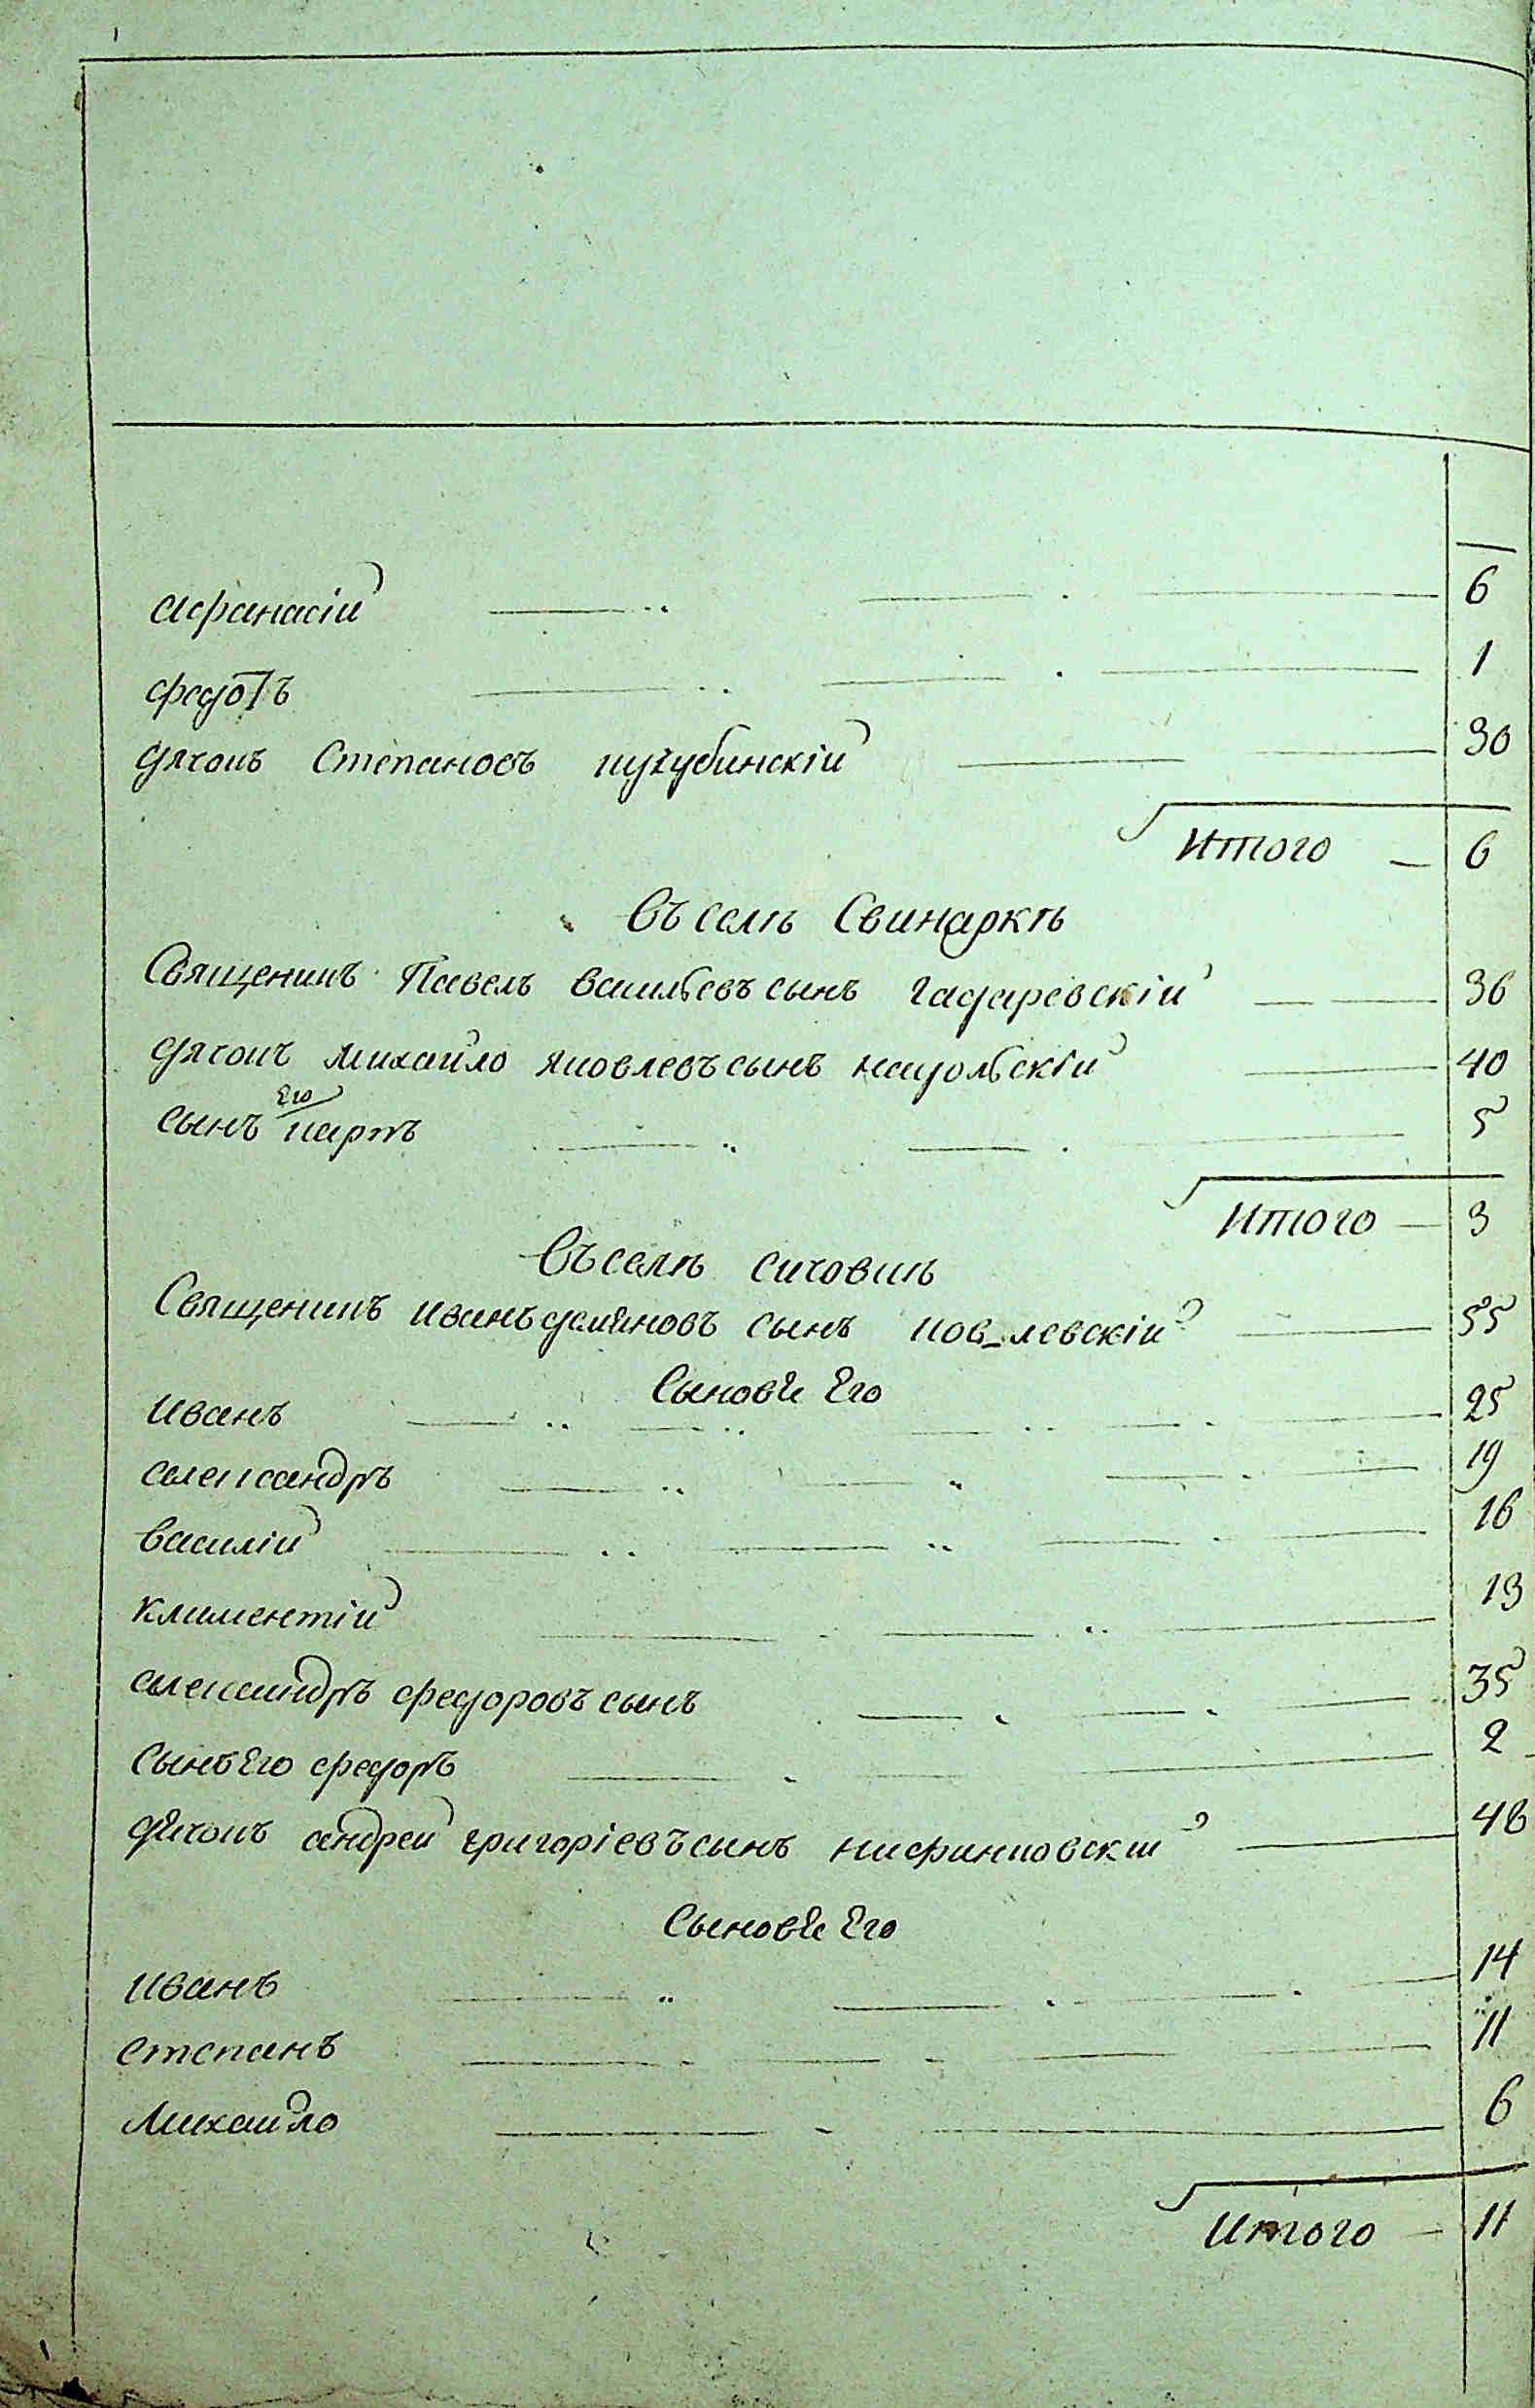 Афанасій 6
Федотъ 1
дячокъ Степановъ 30
Итого 6
Въ селѣ Свинаркѣ
Священикъ Павелъ Васильевъ сынъ Гадаревскій 36
дячокъ Михайло Яковлевъ сынъ Надольскій 40
сынъ Его Карпъ 5
Итого 3
Въ селѣ Сичовкѣ
Священикъ Иванъ Демяновъ сынъ 55
Сыновѣ Его
Иванъ 25
Александръ 19
Василій 16
Климентій 13
Александръ Федоровъ сынъ 35
Сынъ Его Федоръ 2
дячокъ Андрей Григоріевъ сынъ 48
Сыновѣ Его
Иванъ 14
Степанъ 11
Михайло 6
Итого 11